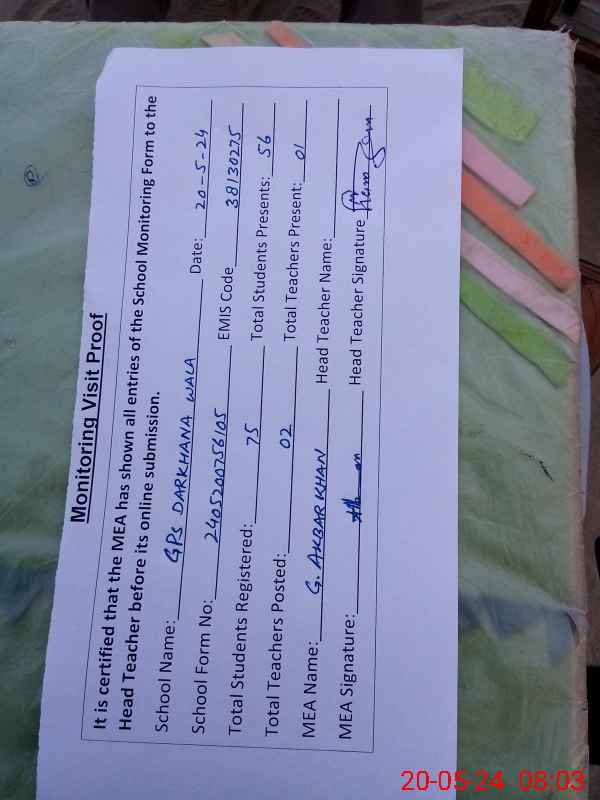 Monitoring Visit Proof
It is certified that the MEA has shown all entries of the School Monitoring Form to the
Head Teacher before its online submission.
School Name: GPS DARKHANA WALA Date: 20-5-24
School Form No: 2405200756105 EMIS Code 38130275
Total Students Registered: 75 Total Students Presents: 56
Total Teachers Posted: 02 Total Teachers Present: 01
MEA Name: G. AKBAR KHAN Head Teacher Name:
MEA Signature: Head Teacher Signature
20-05-24 08:03